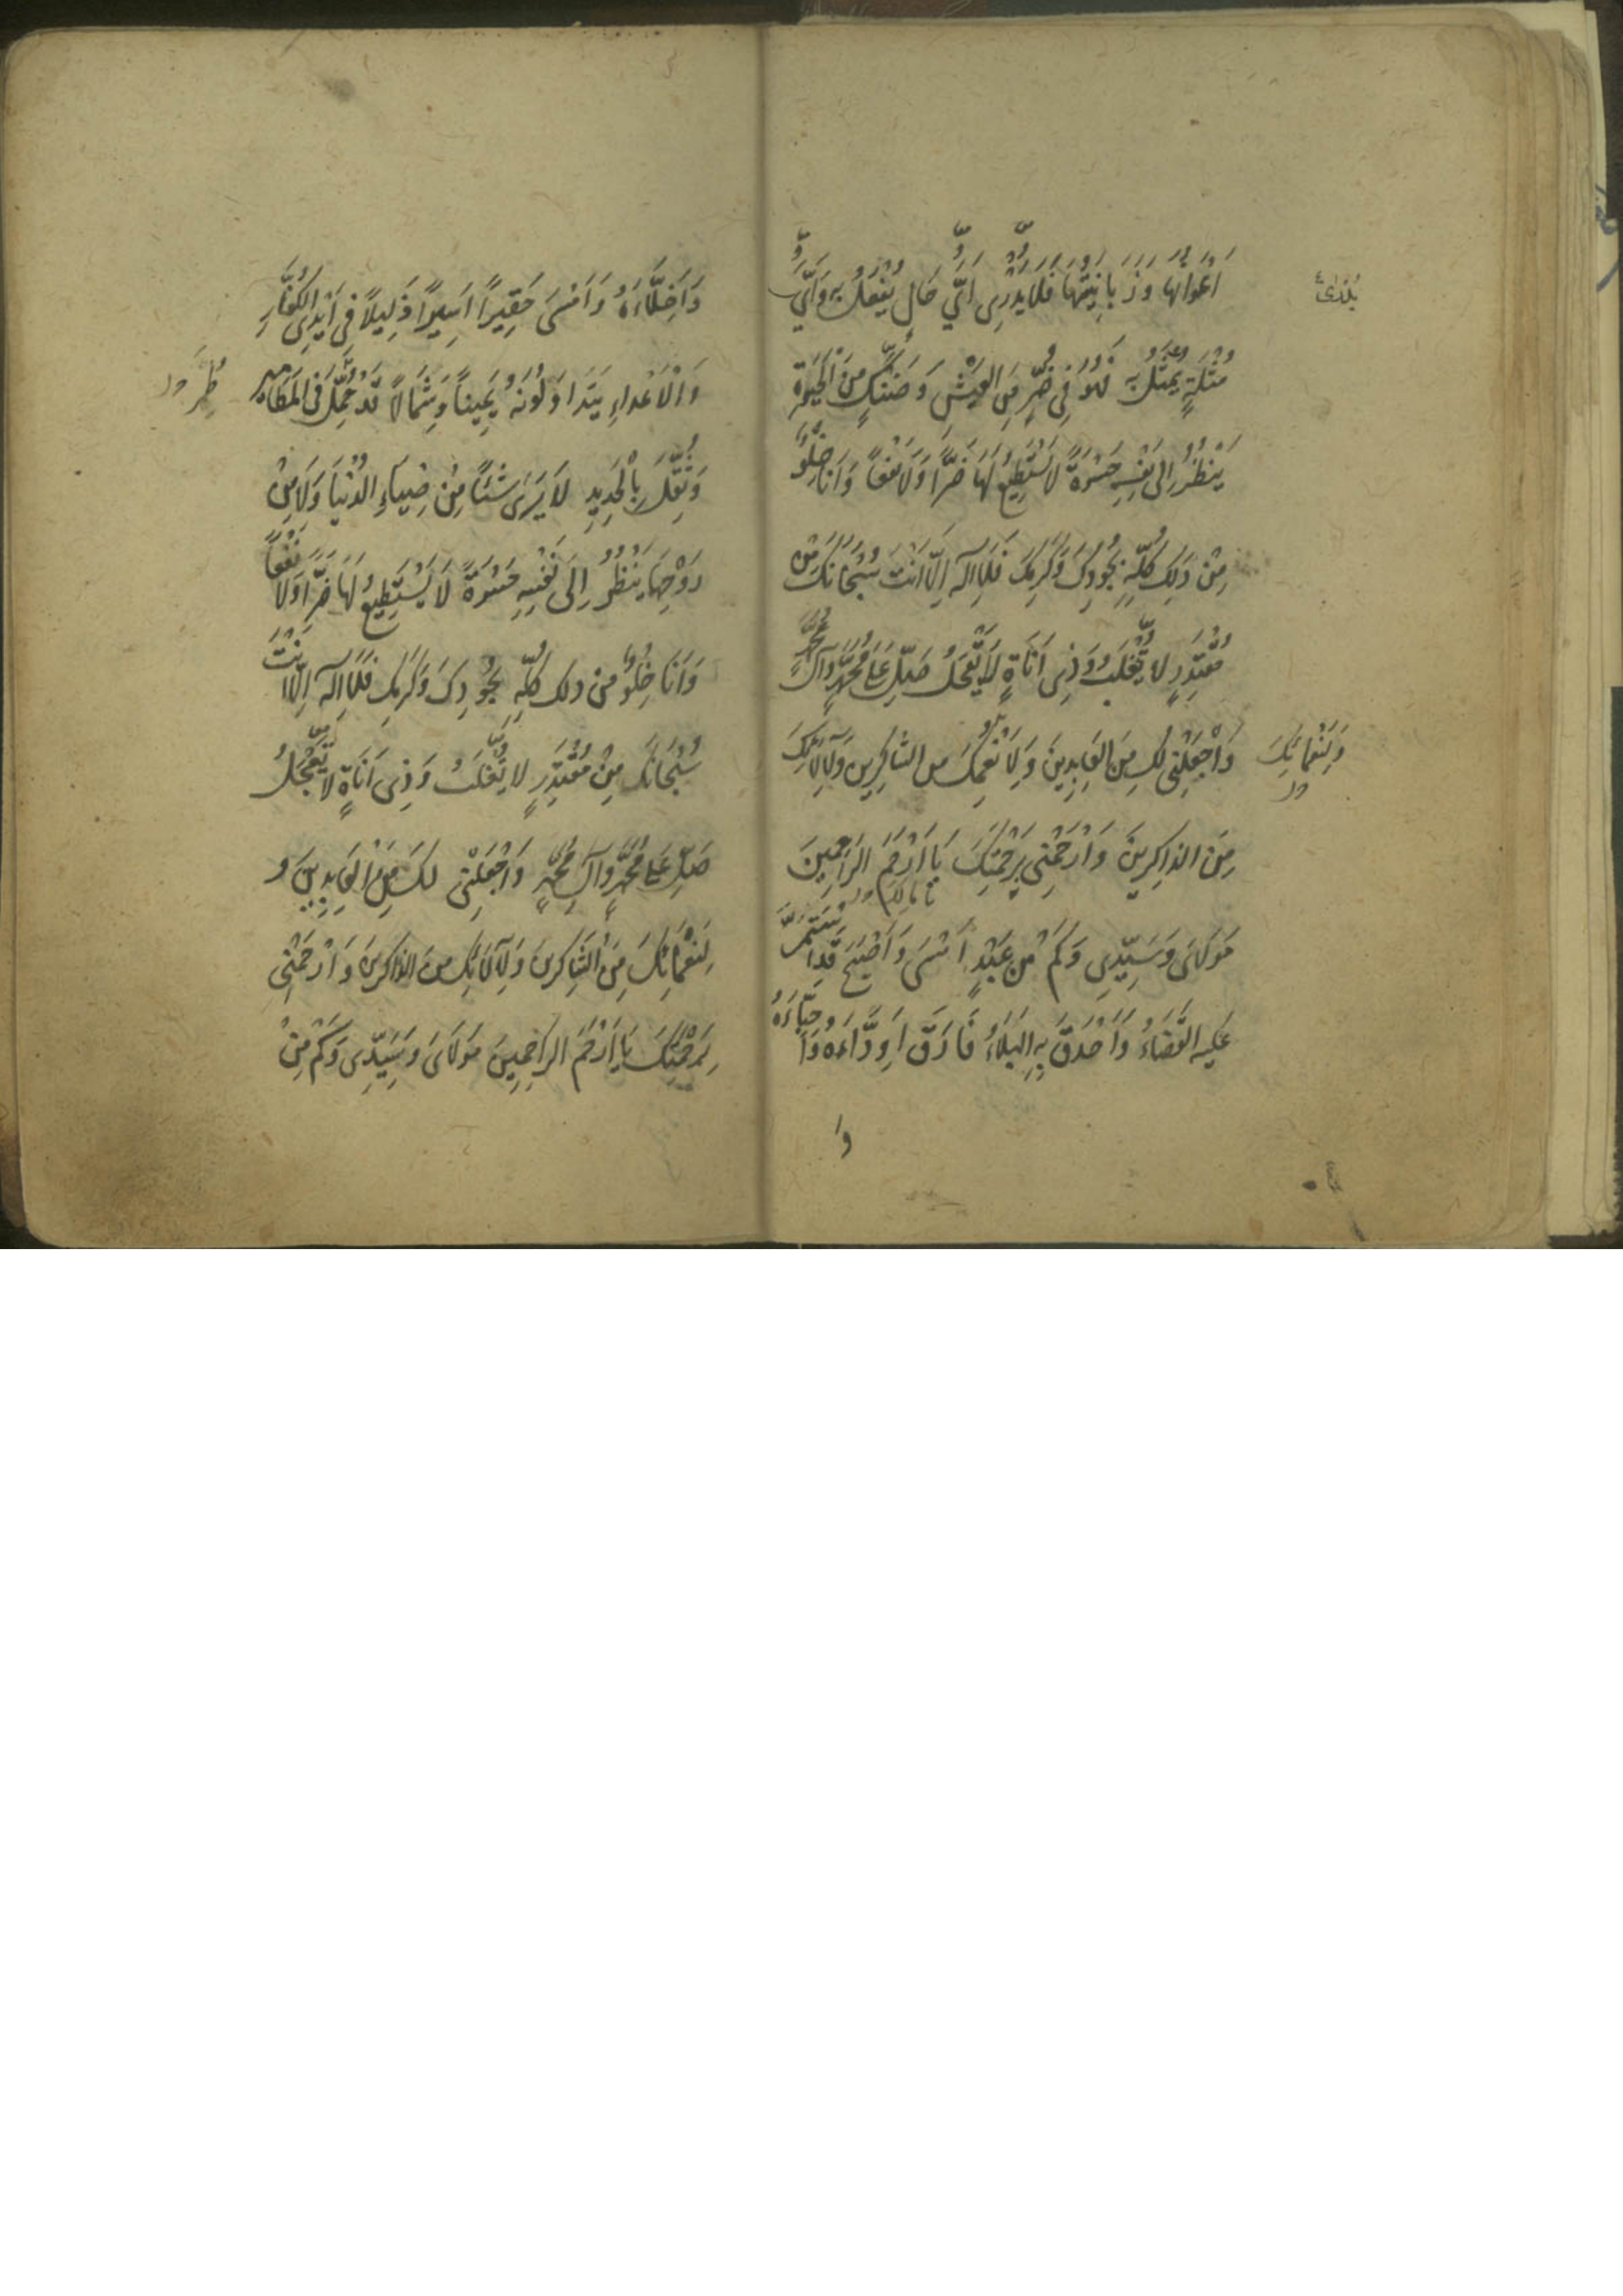 اَعْوَانِهَا وَزَبَانِيَتِهَا فَلَا يَدْرِي اَيَّ حَالٍ يُفْعَلُ بِهِ وَاَيَّ
مُثْلَةٍ يُمَثَّلُ بِهِ فَهُوَ فِي ضُرٍّ مِنَ الْعَيْشِ وَضَنْكٍ مِنَ الْحَيٰوةِ
يَنْظُرُ اِلَى نَفْسِهِ حَسْرَةً لَا يَسْتَطِيعُ لَهَا ضَرًّا وَلَا نَفْعًا وَاَنَا خِلْوٌ
مِنْ ذَلِكَ كُلِّهِ بِجُودِكَ وَكَرَمِكَ فَلَا اِلٰهَ اِلَّا اَنْتَ سُبْحَانَكَ مِنْ
مُقْتَدِرٍ لَا يُغْلَبُ وَذِي اَنَاةٍ لَا يَعْجَلُ صَلِّ عَلَى مُحَمَّدٍ وَآلِ مُحَمَّدٍ
وَاجْعَلْنِي لَكَ مِنَ الْعَابِدِينَ وَلِاَنْعُمِكَ مِنَ الشَّاكِرِينَ وَلِآلَائِكَ
وَلِنَعْمَائِكَ
مِنَ الذَّاكِرِينَ وَارْحَمْنِي بِرَحْمَتِكَ يَا اَرْحَمَ الرَّاحِمِينَ
مَوْلَايَ وَسَيِّدِي وَكَمْ مِنْ عَبْدٍ اَمْسَى وَاَصْبَحَ قَدِ اسْتَمَرَّ
عَلَيْهِ الْقَضَاءُ وَاَحْدَقَ بِهِ الْبَلَاءُ فَارَقَ اَوِدَّاءَهُ وَاَحِبَّاءَهُ
وَ
وَاَخِلَّاءَهُ وَاَمْسَى حَقِيرًا اَسِيرًا ذَلِيلًا فِي اَيْدِي الْكُفَّارِ
وَالْاَعْدَاءِ يَتَدَاوَلُونَهُ يَمِينًا وَشِمَالًا قَدْ حُمِّلَ فِي الْمَطَامِيرِ
وَثُقِّلَ بِالْحَدِيدِ لَا يَرَى شَيْئًا مِنْ ضِيَاءِ الدُّنْيَا وَلَا مِنْ
رَوْحِهَا يَنْظُرُ اِلَى نَفْسِهِ حَسْرَةً لَا يَسْتَطِيعُ لَهَا ضَرًّا وَلَا نَفْعًا
وَاَنَا خِلْوٌ مِنْ ذلك كُلِّهِ بِجُودِكَ وَكَرَمِكَ فَلَا اِلٰهَ اِلَّا اَنْتَ
سُبْحَانَكَ مِنْ مُقْتَدِرٍ لَا يُغْلَبُ وَذِي اَنَاةٍ لَا يَعْجَلُ
صَلِّ عَلَى مُحَمَّدٍ وَآلِ مُحَمَّدٍ وَاجْعَلْنِي لَكَ مِنَ الْعَابِدِينَ وَ
لِنَعْمَائِكَ مِنَ الشَّاكِرِينَ وَلِآلَائِكَ مِنَ الذَّاكِرِينَ وَارْحَمْنِي
بِرَحْمَتِكَ يَا اَرْحَمَ الرَّاحِمِينَ مَوْلَايَ وَسَيِّدِي وَكَمْ مِنْ